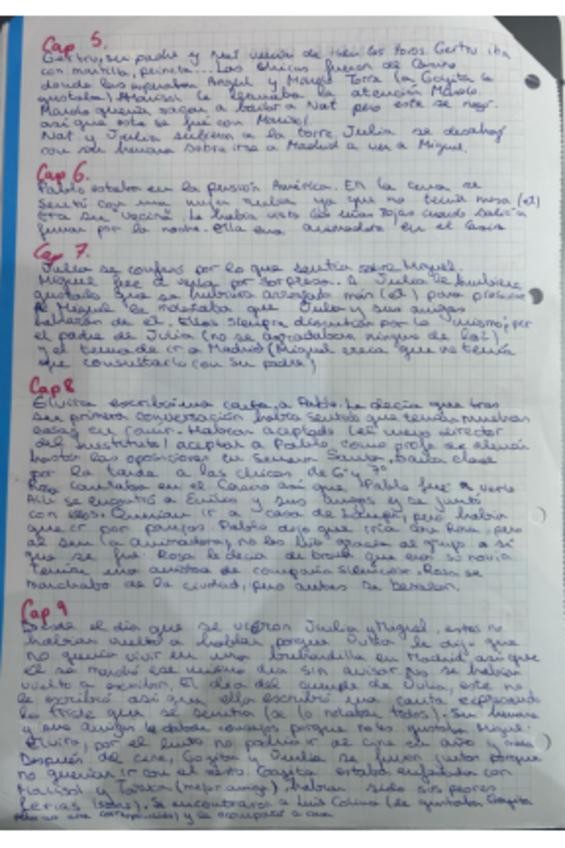 Cap 5.
Gertru, su padre y Nat venían de los toros. Gertru iba
con mantilla, peineta... Las chicas fueron al Casino
donde las esperaban Ángel y Manolo Torre (a Goyita le
gustaba). A Marisol le llamaba la atención Manolo.
Manolo quería sacar a bailar a Nat pero esta se negó
así que este se fue con Marisol.
Nat y Julia subieron a la torre. Julia se desahogó
con su hermana sobre irse a Madrid a ver a Miguel.
Cap 6.
Pablo estaba en la pensión América. En la cena se
sentó con una mujer rubia ya que no tenía mesa (el)
Era su vecina. Le había visto las uñas rojas cuando salía a
fumar por la noche. Ella era animadora en el Casino
Cap 7.
Julia se confesó por lo que sentía sobre Miguel.
Miguel fue a verla por sorpresa. A Julia le hubiera
gustado que se hubiera arreglado más (el) para
A Miguel le molestaba que Julia y sus amigas
hablaran de el. Ellos siempre discutían por lo mismo; por
el padre de Julia (no se agradaban ninguno de los)
y el tema de ir a Madrid (Miguel creía que no tenía
que consultarlo con su padre)
Cap 8
Elvira escribió una carta a Pablo. Le decía que tras
su primera conversación había sentido que tenían muchas
cosas en común. Habían aceptado (el nuevo director
del instituto) aceptar a Pablo, como profe de alemán
hasta las oposiciones en Semana Santa. Daría clase
por la tarde a las chicas de 6º y 7º
Rosa cantaba en el Casino así que Pablo fue a verla
Allí se encontró a Emilio y sus amigos y se juntó
con ellos. Querían ir a casa de, pero había
que ir por parejas. Pablo dijo que iría con Rosa, pero
al ser la animadora, no les hizo gracia al grupo así
que se fue. Rosa le decía de broma que era su novia
Tenían una amistad de compañía silenciosa. Rosa se
marchaba de la ciudad, pero antes se besaron.
Cap 9
Desde el día que se vieron Julia y Miguel, estos no
habían vuelto a hablar porque Julia le dijo que
no quería vivir en una buhardilla en Madrid, así que
él se marchó ese mismo día sin avisar. No se habían
vuelto a escribir. El día del cumple de Julia, este no
le escribió así que ella escribió una carta explicando
lo triste que se sentía (se lo notaban todos). Su hermana
y sus amigas le daban consejos porque no les gustaba Miguel.
Elvira, por el luto no podía ir de cine en un año y
Después del cine, Goyita y Julia se fueron juntas porque
no querían ir con el resto. Goyita estaba enfadada con
Marisol y Toñuca (mejor amiga), habían sido sus peores
ferias (). Se encontraron a Luis Colina (le gustaba Goyita
pero no era correspondido) y la acompañó a casa